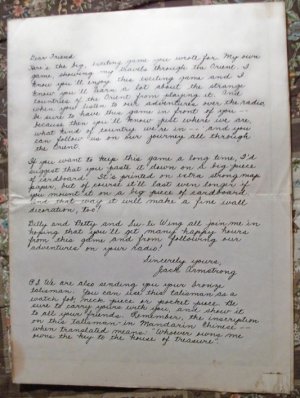 Dear Friend
Here's the big, exciting game you wrote for. My own
game, showing my travels through the Orient. I
know you'll enjoy this exciting game and I
know you'll learn a lot about the strange
countries of the Orient from playing it. And
when you listen to our adventures over the radio
be sure to have this game in front of you --
because then you'll know just where we are,
what kind of country we're in -- and you
can follow us on our journey all through
the Orient.
If you want to keep this game a long time, I'd
suggest that you paste it down on a big piece
of cardboard. It's printed on extra strong map
paper, but of course it'll last even longer if
you mount it on a big piece of cardboard.
And that way it will make a fine wall
decoration, too!
Billy and Betty and Su-lu Wing all join me in
hoping that you'll get many happy hours
from this game and from following our
adventures on your radio!
Sincerely yours,
Jack Armstrong
P.S. We are also sending you your bronze
talisman. You can use this talisman as a
watch fob, neck piece or pocket piece. Be
sure to carry yours with you, and show it
to all your friends. Remember, the inscription
on this talisman in Mandarin Chinese --
when translated means: "Whoever owns me
owns the key to the house of treasure".